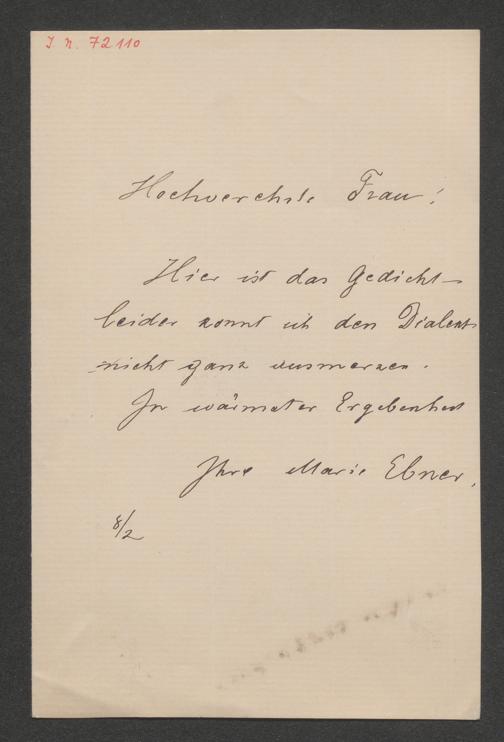 I. N. 72110
Hochverehrte Frau!
Hier ist das Gedicht –
leider konnt ich den Dialect
nicht ganz ausmerzen.
In wärmster Ergebenheit
Ihre Marie Ebner.
8/2